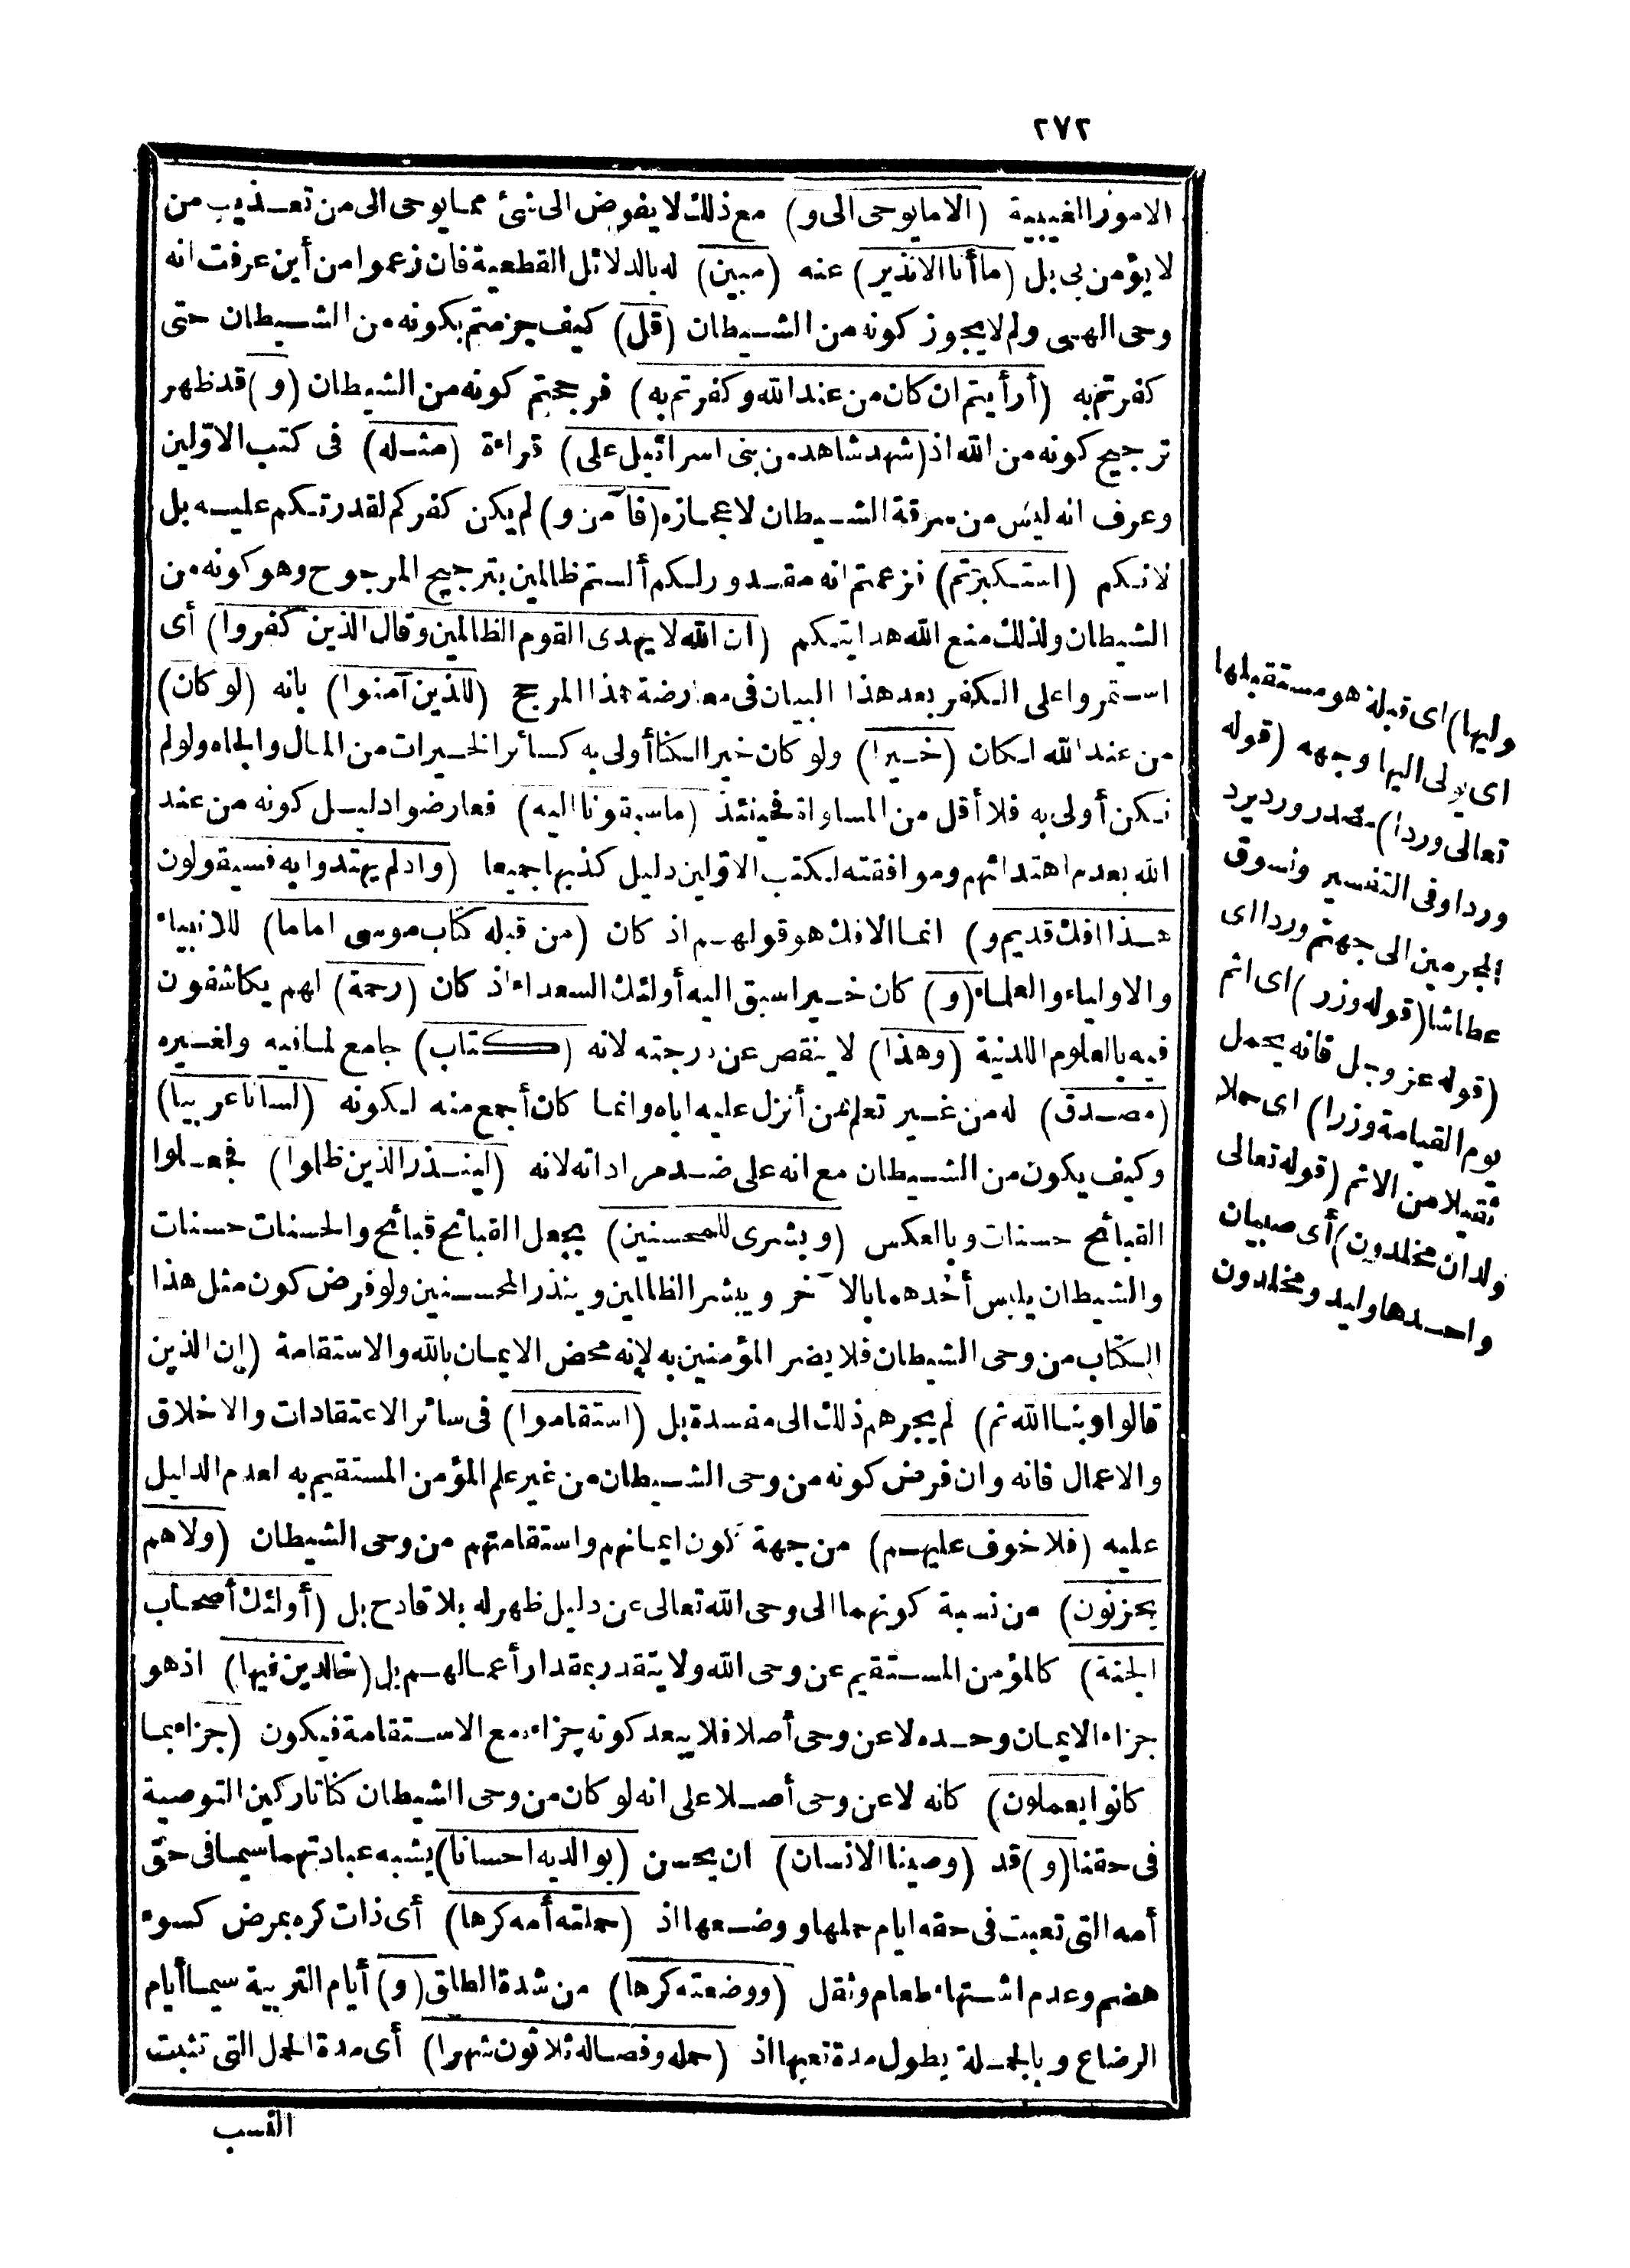 ٢٧٢
الامور الغيبية (الا ما يوحى الى و) مع ذلك لا يفوض الى شئ مما يوحى الى من تعذيب من
لا يؤمن بى بل (ما أنا الا نذير) عنه (مبين) له بالدلائل القطعية فان زعموا من أين عرفت انه
وحى الهى ولم لا يجوز كونه من الشيطان (قل) كيف جزمتم بكونه من الشيطان حتى
كفرتم به (أرأيتم ان كان من عند الله وكفرتم به) فرجحتم كونه من الشيطان (و) قد ظهر
ترجيح كونه من الله اذ (شهد شاهد من بنى اسرائيل على) قراءة (مثله) فى كتب الاوّلين
وعرف انه ليس من سرقة الشيطان لاعجازه (فآمن و) لم يكن كفركم لقدرتكم عليه بل
لانكم (استكبرتم) فزعمتم انه مقدور لكم ألستم ظالمين بترجيح المرجوح وهو كونه من
الشيطان ولذلك منع الله هدايتكم (ان الله لا يهدى القوم الظالمين وقال الذين كفروا) أى
استمروا على الكفر بعد هذا البيان فى معارضة هذا المرجح (للذين آمنوا) بانه (لو كان)
من عند الله لكان (خيرا) ولو كان خيرا لكنا أولى به كسائر الخيرات من المال والجاه ولو لم
نكن أولى به فلا أقل من المساواة فحينئذ (ما سبقونا اليه) فعارضوا دليل كونه من عند
الله بعدم اهتدائهم وموافقته لكتب الاوّلين دليل كذبها جميعا (واذ لم يهتدوا به فسيقولون
هذا افك قديم و) انما الافك هو قولهم اذ كان (من قبله كتاب موسى اماما) للانبياء
والاولياء والعلماء (و) كان خيرا سبق اليه أولئك السعداء اذ كان (رحمة) لهم يكاشفون
فيه بالعلوم اللدنية (وهذا) لا ينقص عن درجته لانه (كتاب) جامع لمافيه ولغيره
(مصدق) له من غير تعلم ممن أنزل عليه اياه وانما كان أجمع منه لكونه (لسانا عربيا)
وكيف يكون من الشيطان مع انه على ضد مراداته لانه (لينذر الذين ظلموا) فجعلوا
القبائح حسنات وبالعكس (وبشرى للمحسنين) بجعل القبائح قبائح والحسنات حسنات
والشيطان يلبس أحدهما بالآخر ويبشر الظالمين وينذر المحسنين ولو فرض كون مثل هذا
الكتاب من وحى الشيطان فلا يضر المؤمنين به لانه محض الايمان بالله والاستقامة (ان الذين
قالوا ربنا الله ثم) لم يجرهم ذلك الى مفسدة بل (استقاموا) فى سائر الاعتقادات والاخلاق
والاعمال فانه وان فرض كونه من وحى الشيطان من غير علم المؤمن المستقيم به لعدم الدليل
عليه (فلا خوف عليهم) من جهة كون ايمانهم واستقامتهم من وحى الشيطان (ولا هم
يحزنون) من نسبة كونهما الى وحى الله تعالى عن دليل ظهر له بلا قادح بل (أولئك أصحاب
الجنة) كالمؤمن المستقيم عن وحى الله ولا يتقدر بمقدار أعمالهم بل (خالدين فيها) اذ هو
جزاء الايمان وحده لا عن وحى أصلا فلا يبعد كونه جزاءه مع الاستقامة فيكون (جزاء بما
كانوا يعملون) كانه لا عن وحى أصلا على انه لو كان من وحى الشيطان كنا تاركين التوصية
فى حقنا (و) قد (وصينا الانسان) ان يحسن (بوالديه احسانا) يشبه عبادتهما سيما فى حق
أمه التى تعبت فى حقه ايام حملها ووضعها اذ (حملته أمه كرها) أى ذات كره بمرض كسوء
هضم وعدم اشتهاء طعام وثقل (ووضعته كرها) من شدة الطلق (و) أيام التربية سيما أيام
الرضاع وبالجملة يطول مدة تعبها اذ (حمله وفصاله ثلاثون شهرا) أى مدة الحمل التى تثبت
النسب
وليها) اى قبلة هو مستقبلها
اى يولى اليها وجهه (قوله
تعالى وردا) مصدر ورد يرد
وردا وفى التفسير ونسوق
المجرمين الى جهنم وردا اى
عطاشا (قوله وزر) اى اثم
(قوله عز وجل فانه يحمل
يوم القيامة وزرا) اى حملا
ثقيلا من الاثم (قوله تعالى
ولدان مخلدون) أى صبيان
واحدها وليد ومخلدون